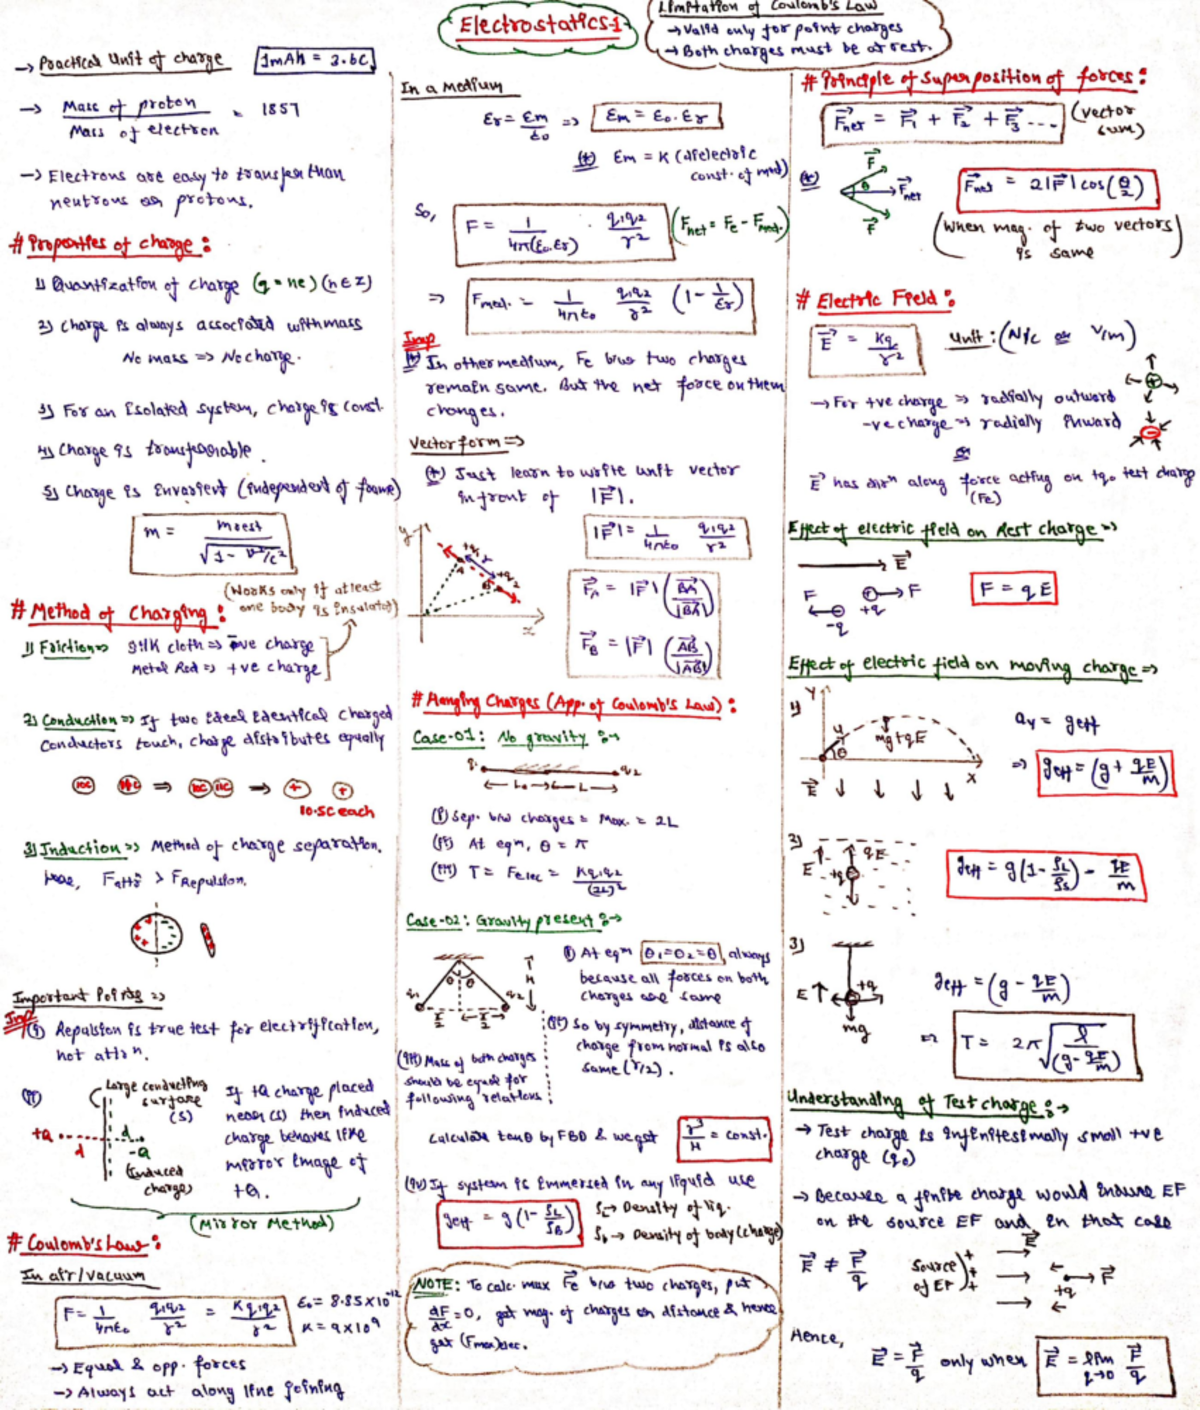 Electrostatics-1
Limitation of Coulomb's Law
→ Valid only for point charges
→ Both charges must be at rest.
→ Practical Unit of charge 1mAh = 3.6C
→ Mass of proton / Mass of electron = 1857
→ Electrons are easy to transfer than
neutrons or protons.
# Properties of charge :
1) Quantization of charge (q = ne) (n∈Z)
2) Charge is always associated with mass
No mass => No charge.
3) For an isolated system, charge is const.
4) Charge is transferable.
5) Charge is Invarient (independent of frame)
m = mrest / √(1 - v²/c²)
(Works only if at least
one body is insulated)
# Method of Charging :
1) Friction => Silk cloth => -ve charge
Metal Rod => +ve charge
2) Conduction => If two ideal identical charged
Conductors touch, charge distributes equally
10C 11C => 10C 11C → + +
10.5C each
3) Induction => Method of charge separation.
Here, Fattr > FRepulsion.
Important Points =>
Imp
(i) Repulsion is true test for electrification,
not attrn.
(ii) Large conducting
surface
(S)
+Q d d -Q
(induced
charge)
If +Q charge placed
near (S) then induced
charge behaves like
mirror image of
+Q.
(Mirror Method)
# Coulomb's Law :
In air/vacuum
F = 1/4πε₀ q₁q₂/r² = Kq₁q₂/r²
ε₀ = 8.85×10⁻¹²
K = 9×10⁹
→ Equal & opp. forces
→ Always act along line joining
In a Medium
εr = εm/ε₀ => εm = ε₀.εr
(*) εm = K (dielectric
const. of med)
So, F = 1/4π(ε₀.εr) . q₁q₂/r² (Fnet = Fe - Fmed.)
=> Fmed. = 1/4πε₀ q₁q₂/r² (1 - 1/εr)
Imp
(*) In other medium, Fe b/w two charges
remain same. But the net force on them
changes.
Vector form =>
(*) Just learn to write unit vector
in front of |F⃗|.
|F⃗| = 1/4πε₀ q₁q₂/r²
F⃗A = |F⃗| (BA⃗/|BA⃗|)
F⃗B = |F⃗| (AB⃗/|AB⃗|)
y +q₁ r +q₂ A B x
# Hanging Charges (App. of Coulomb's Law) :
Case-01 : No gravity :→
q₁ q₂
← L → ← L →
(i) Sep. b/w charges = Max. = 2L
(ii) At eqm, θ = π
(iii) T = Felec = Kq₁q₂/(2L)²
Case-02 : Gravity present :→
θ θ H
q₁ q₂
r/2 r/2
(i) At eqm θ₁=θ₂=θ, always
because all forces on both
charges are same
(ii) So by symmetry, distance of
charge from normal is also
same (r/2).
(iii) Mass of both charges
should be equal for
following relations :
Calculate tanθ by FBD & we get r³/H = const.
(iv) If system is immersed in any liquid use
geff = g(1 - ρL/ρB)
ρL → Density of liq.
ρb → Density of body (charge)
NOTE : To calc. max F⃗e b/w two charges, put
dF/dx = 0, get mag. of charges or distance & hence
get (Fmax)elec.
# Principle of Superposition of forces :
F⃗net = F⃗₁ + F⃗₂ + F⃗₃ .... (vector
sum)
(*) F⃗ θ F⃗net F⃗
F⃗net = 2|F⃗|cos(θ/2)
(When mag. of two vectors
is same)
# Electric Field :
E⃗ = Kq/r² Unit : (N/C or V/m)
→ For +ve charge => radially outward
-ve charge => radially inward
or
E⃗ has dirn along force acting on +q₀ test charge
(Fe)
Effect of electric field on Rest charge =>
E⃗
F -q +q F
F = qE
Effect of electric field on moving charge =>
1) Y u θ mg+qE X
E⃗ ↓ ↓ ↓ ↓
ay = geff
=> geff = (g + qE/m)
2) E qE +q
geff = g(1 - ρL/ρs) - qE/m
3) E ↑ +q mg
geff = (g - qE/m)
=> T = 2π√(l/(g - qE/m))
Understanding of Test charge :→
→ Test charge is infinitesimally small +ve
charge (q₀)
→ Because a finite charge would induce EF
on the source EF and in that case
E⃗ ≠ F⃗/q
Source
of EF
E⃗ +q F⃗
Hence,
E⃗ = F⃗/q only when E⃗ = lim q→0 F⃗/q